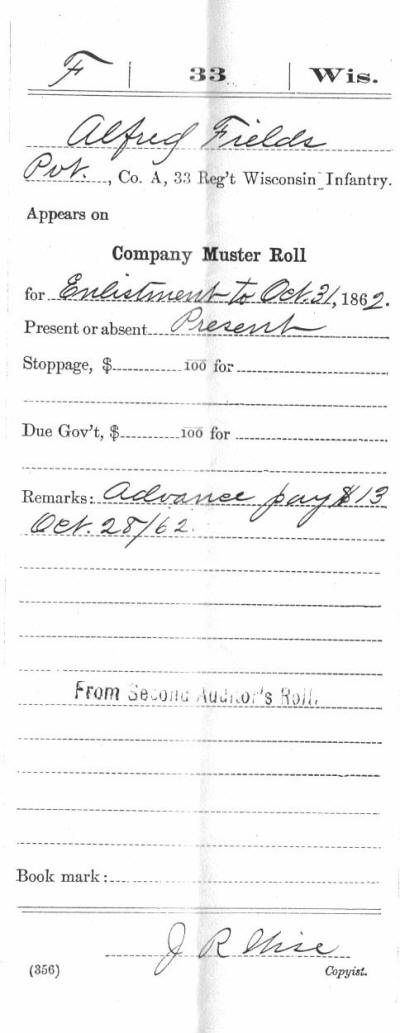 F | 33 | Wis.
Alfred Fields
Pvt., Co. A, 33 Reg't Wisconsin Infantry.
Appears on
Company Muster Roll
for Enlistment to Oct. 31, 1862.
Present or absent Present
Stoppage, $ 100 for
Due Gov't, $ 100 for
Remarks: Advance pay $13
Oct. 28/62.
From Second Auditor's Roll.
Book mark:
J R Wise
(356) Copyist.